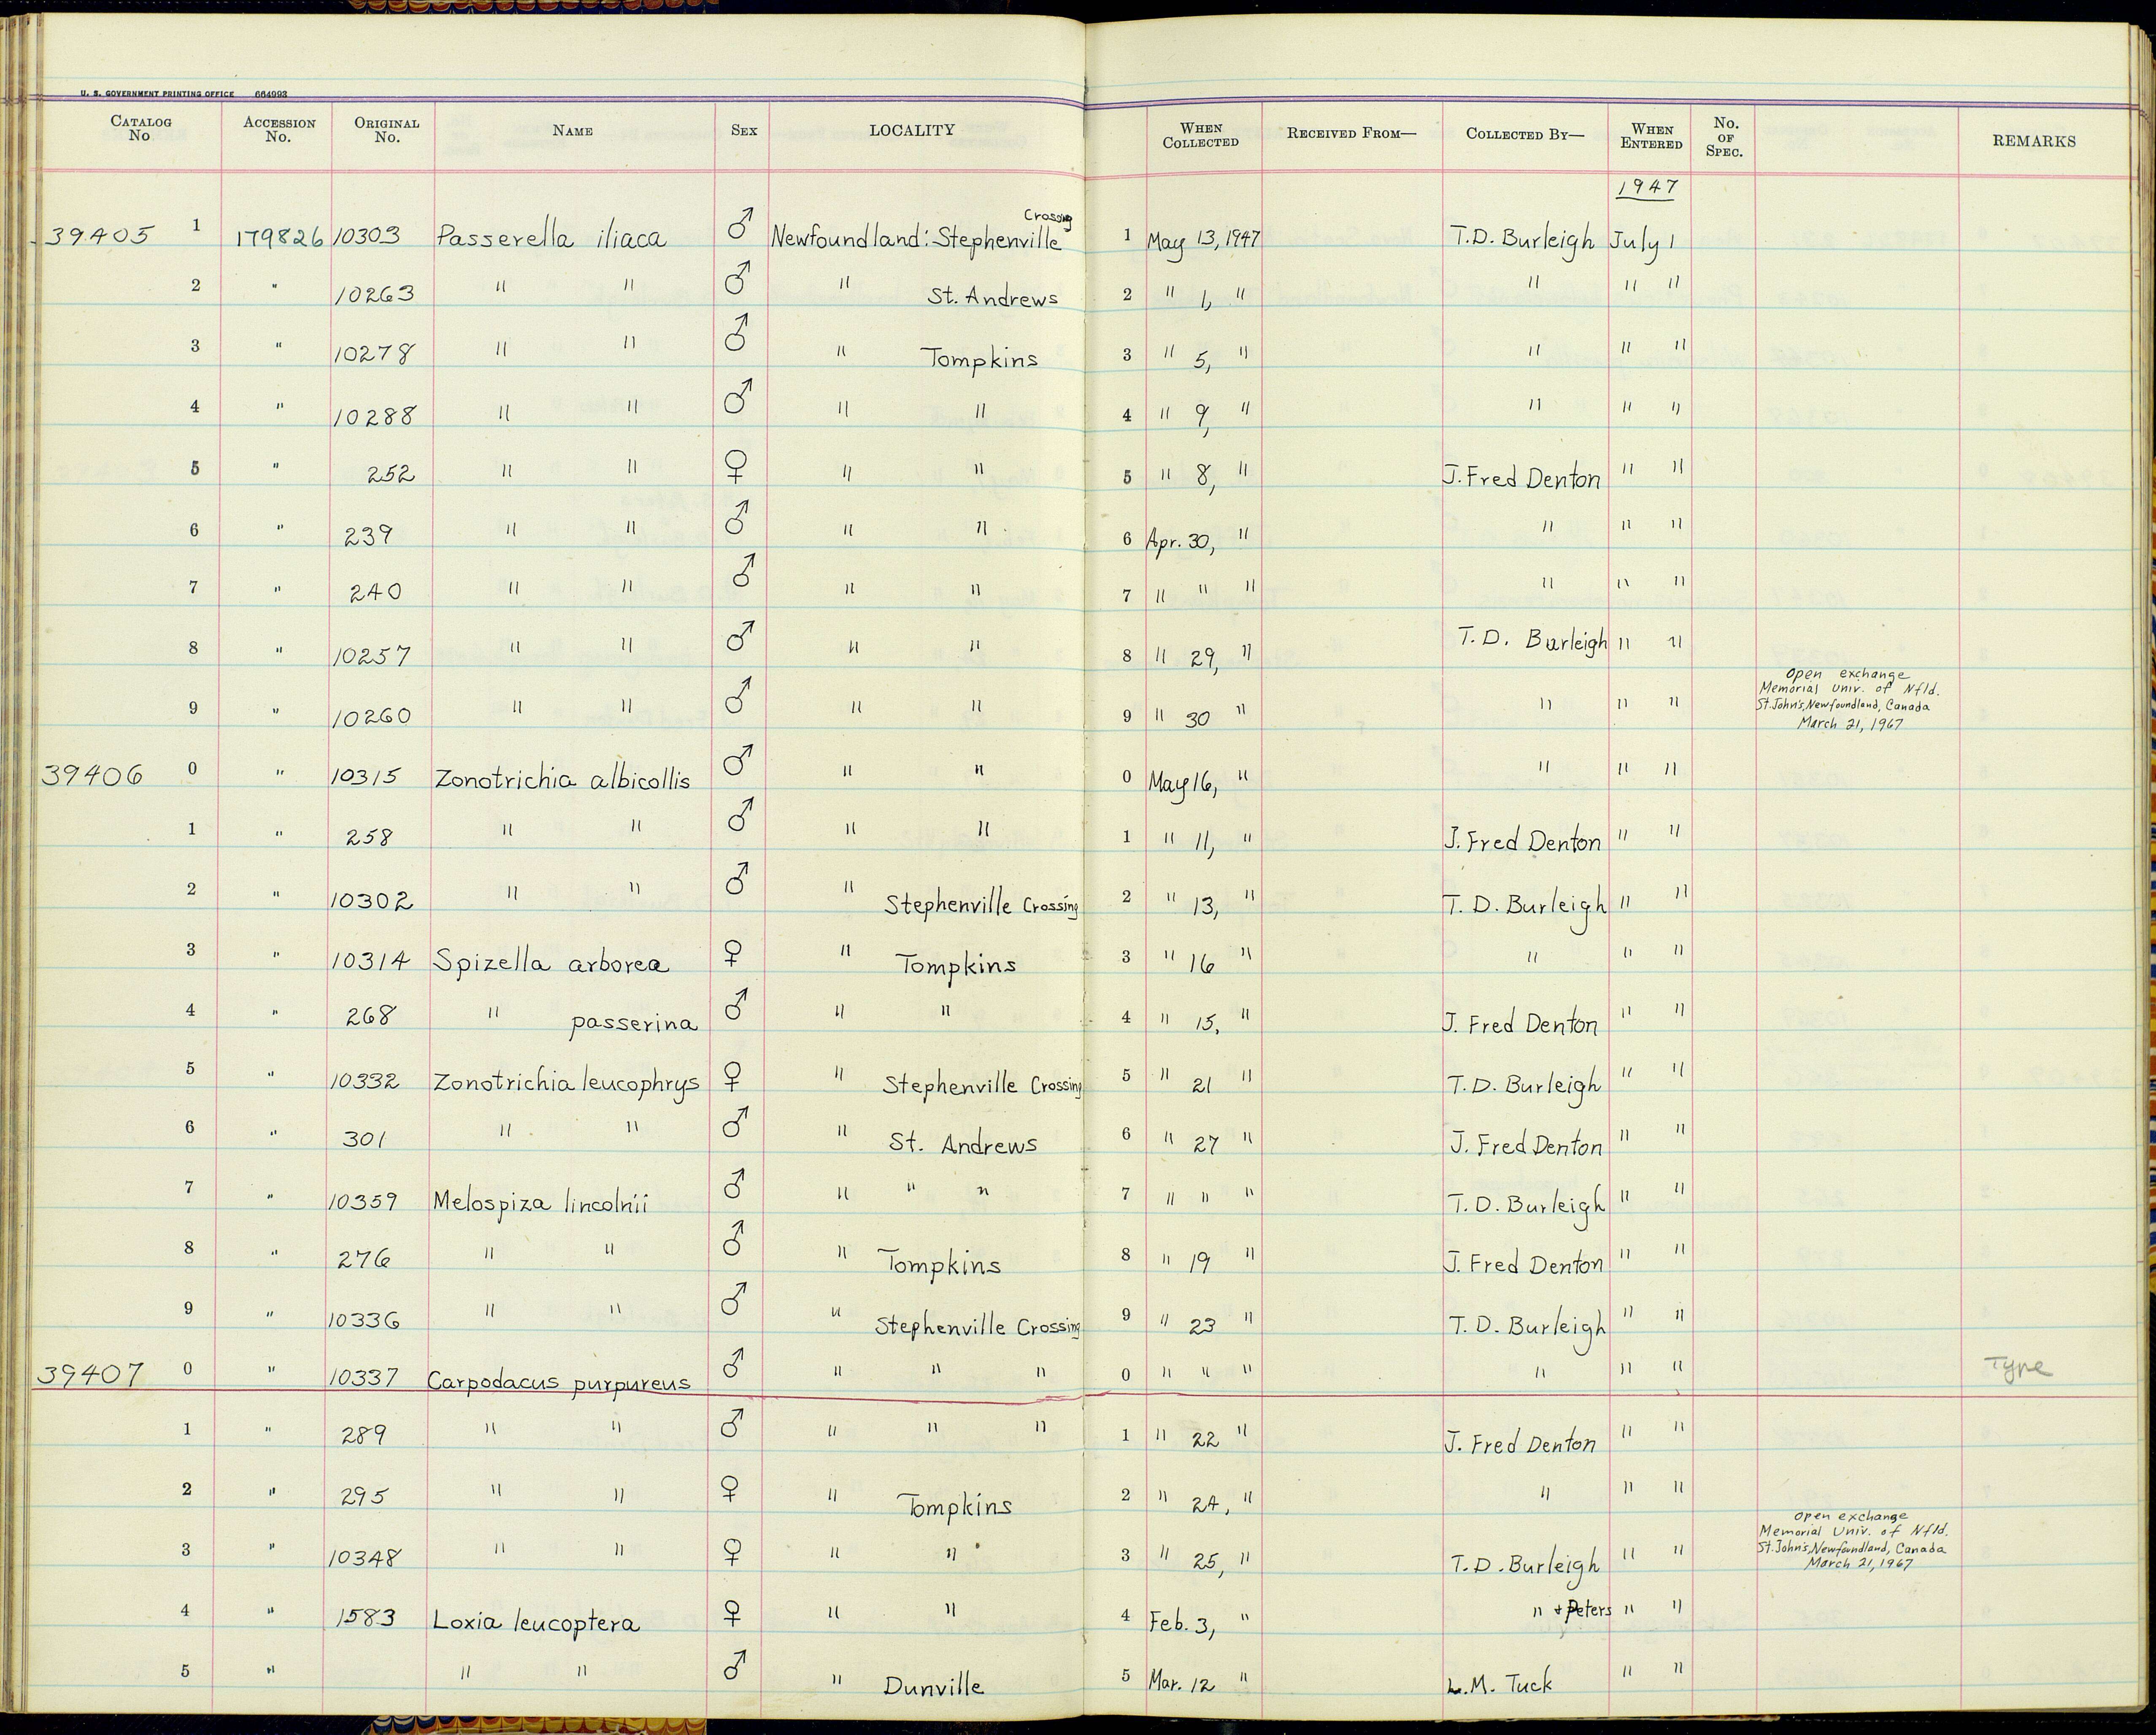 U. S. GOVERNMENT PRINTING OFFICE 664993
CATALOG No ACCESSION No. ORIGINAL No. NAME SEX LOCALITY WHEN COLLECTED RECEIVED FROM— COLLECTED BY— WHEN ENTERED No. OF SPEC. REMARKS
1947
39405 1 179826 10303 Passerella iliaca ♂ Newfoundland: Stephenville Crossing 1 May 13, 1947 T.D. Burleigh July 1
2 " 10263 " " ♂ " St. Andrews 2 " 1, " " " "
3 " 10278 " " ♂ " Tompkins 3 " 5, " " " "
4 " 10288 " " ♂ " " 4 " 9, " " " "
5 " 252 " " ♀ " " 5 " 8, " J. Fred Denton " "
6 " 239 " " ♂ " " 6 Apr. 30, " " " "
7 " 240 " " ♂ " " 7 " " " " " "
8 " 10257 " " ♂ " " 8 " 29, " T. D. Burleigh " "
9 " 10260 " " ♂ " " 9 " 30 " " " " Open exchange
Memorial Univ. of Nfld.
St. John's, Newfoundland, Canada
March 21, 1967
39406 0 " 10315 Zonotrichia albicollis ♂ " " 0 May 16, " " " "
1 " 258 " " ♂ " " 1 " 11, " J. Fred Denton " "
2 " 10302 " " ♂ " Stephenville Crossing 2 " 13, " T. D. Burleigh " "
3 " 10314 Spizella arborea ♀ " Tompkins 3 " 16 " " " "
4 " 268 " passerina ♂ " " 4 " 15, " J. Fred Denton " "
5 " 10332 Zonotrichia leucophrys ♀ " Stephenville Crossing 5 " 21 " T. D. Burleigh " "
6 " 301 " " ♂ " St. Andrews 6 " 27 " J. Fred Denton " "
7 " 10359 Melospiza lincolnii ♂ " " " 7 " " " T. D. Burleigh " "
8 " 276 " " ♂ " Tompkins 8 " 19 " J. Fred Denton " "
9 " 10336 " " ♂ " Stephenville Crossing 9 " 23 " T. D. Burleigh " "
39407 0 " 10337 Carpodacus purpureus ♂ " " " 0 " " " " " " Type
1 " 289 " " ♂ " " " 1 " 22 " J. Fred Denton " "
2 " 295 " " ♀ " Tompkins 2 " 24, " " " "
3 " 10348 " " ♀ " " 3 " 25, " T. D. Burleigh " " Open exchange
Memorial Univ. of Nfld.
St. John's, Newfoundland, Canada
March 21, 1967
4 " 1583 Loxia leucoptera ♀ " " 4 Feb. 3, " " + Peters " "
5 " " " ♂ " Dunville 5 Mar. 12 " L. M. Tuck " "